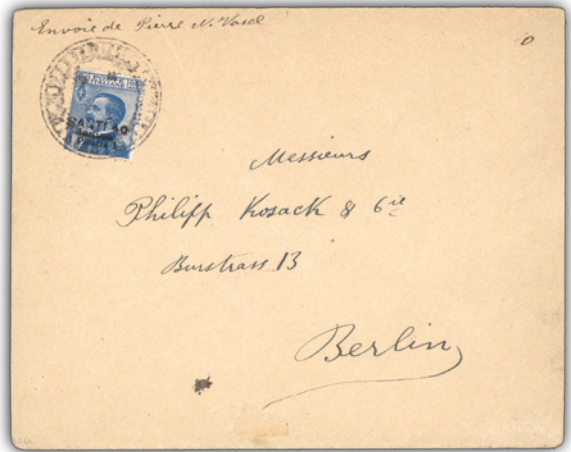 Envoie de Pierre N. Vasel
ITALIANE
Messieurs
Philipp Kosack & Cie
Burstrass 13
Berlin